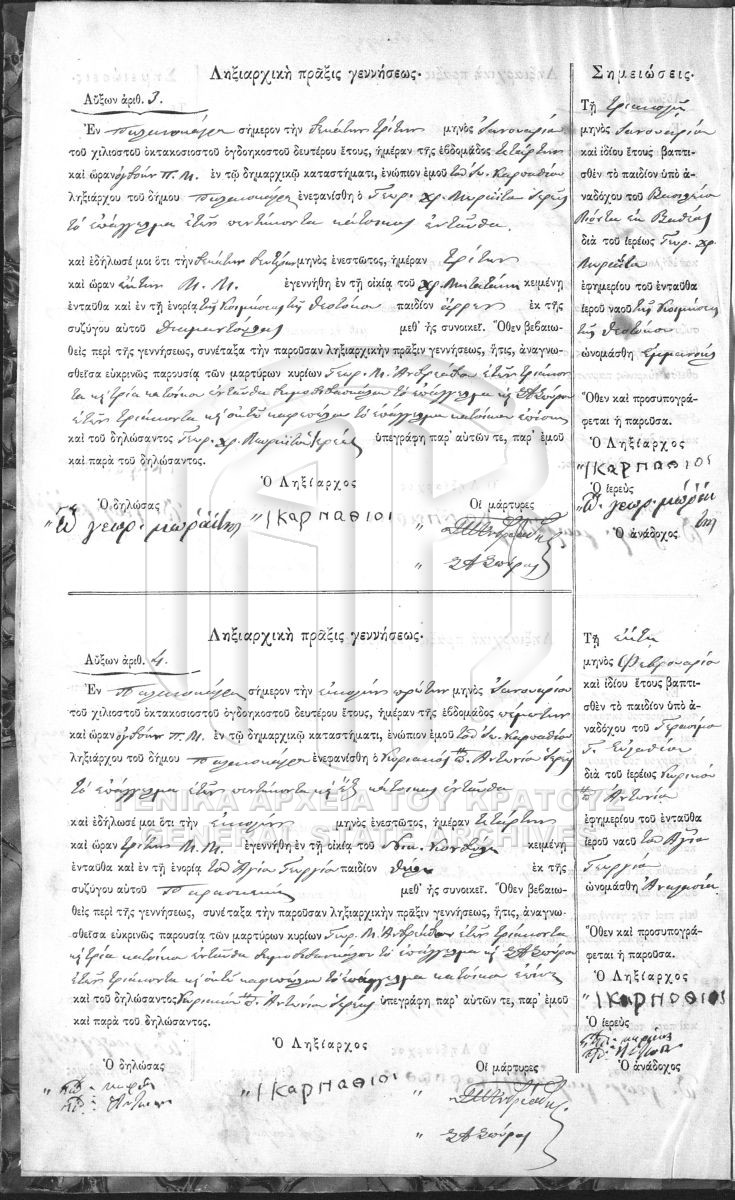 Ληξιαρχικὴ πρᾶξις γεννήσεως.
Αὔξων ἀριθ. 3.
Ἐν σήμερον τὴν δεκάτην τρίτην μηνὸς Ἰανουαρίου
τοῦ χιλιοστοῦ ὀκτακοσιοστοῦ ὀγδοηκοστοῦ δευτέρου ἔτους, ἡμέραν τῆς ἑβδομάδος τετάρτην
καὶ ὥραν ὀγδόην Π. Μ. ἐν τῷ δημαρχικῷ καταστήματι, ἐνώπιον ἐμοῦ τοῦ Ἰω. Καρπαθίου
ληξιάρχου τοῦ δήμου ἐνεφανίσθη ὁ Γεώρ. χρ. Μωραΐτου ἱερεὺς
τὸ ἐπάγγελμα ἐτῶν πεντήκοντα κάτοικος ἐνταῦθα.
καὶ ἐδήλωσέ μοι ὅτι τὴν δεκάτην δευτέραν μηνὸς ἐνεστῶτος, ἡμέραν Τρίτην
καὶ ὥραν ἕκτην Μ. Μ. ἐγεννήθη ἐν τῇ οἰκίᾳ τοῦ κειμένῃ
ἐνταῦθα καὶ ἐν τῇ ἐνορίᾳ τῆς Κοιμήσεως τῆς Θεοτόκου παιδίον ἄρρεν ἐκ τῆς
συζύγου αὐτοῦ μεθ᾽ ἧς συνοικεῖ. Ὅθεν βεβαιω-
θεὶς περὶ τῆς γεννήσεως, συνέταξα τὴν παροῦσαν ληξιαρχικὴν πρᾶξιν γεννήσεως, ἥτις, ἀναγνω-
σθεῖσα εὐκρινῶς παρουσίᾳ τῶν μαρτύρων κυρίων Γεωρ. Μ. Ἀνδρεάδου ἐτῶν τριάκον-
τα κ τρία κατοίκου ἐνταῦθα δημοδιδασκάλου τὸ ἐπάγγελμα κ Σπύρου
ἐτῶν τριάκοντα κ ὀκτὼ τὸ ἐπάγγελμα κατοίκου ἐπίσης
καὶ τοῦ δηλώσαντος Γεωρ. χρ. Μωραΐτου ἱερέως ὑπεγράφη παρ᾽ αὐτῶν τε, παρ᾽ ἐμοῦ
καὶ παρὰ τοῦ δηλώσαντος.
Ὁ Ληξίαρχος
Ὁ δηλώσας
Οἱ μάρτυρες
γεωρ. μωραΐτης
Ι Καρπαθιοι
Σημειώσεις.
Τῇ τριακοστῇ
μηνὸς Ἰανουαρίου
καὶ ἰδίου ἔτους βαπτι-
σθὲν τὸ παιδίον ὑπὸ ἀ-
ναδόχου τοῦ Βασιλείου
ἐκ Βαθέως
διὰ τοῦ ἱερέως Γεωρ. χρ.
Μωραΐτου
ἐφημερίου τοῦ ἐνταῦθα
ἱεροῦ ναοῦ τῆς Κοιμήσεως
τῆς Θεοτόκου
ὠνομάσθη Ἐμμανουὴλ
Ὅθεν καὶ προσυπογρά-
φεται ἡ παροῦσα.
Ὁ Ληξίαρχος
Ι Καρπαθιοι
Ὁ ἱερεὺς
γεωρ. μωραΐ
της
Ὁ ἀνάδοχος
Ληξιαρχικὴ πρᾶξις γεννήσεως.
Αὔξων ἀριθ. 4.
Ἐν σήμερον τὴν εἰκοστὴν πρώτην μηνὸς Ἰανουαρίου
τοῦ χιλιοστοῦ ὀκτακοσιοστοῦ ὀγδοηκοστοῦ δευτέρου ἔτους, ἡμέραν τῆς ἑβδομάδος πέμπτην
καὶ ὥραν ὀγδόην Π. Μ. ἐν τῷ δημαρχικῷ καταστήματι, ἐνώπιον ἐμοῦ τοῦ Ἰω. Καρπαθίου
ληξιάρχου τοῦ δήμου ἐνεφανίσθη ὁ Κυριακὸς Ἀντωνίου ἱερεὺς
τὸ ἐπάγγελμα ἐτῶν πεντήκοντα κ ἓξ κάτοικος ἐνταῦθα
καὶ ἐδήλωσέ μοι ὅτι τὴν εἰκοστὴν μηνὸς ἐνεστῶτος, ἡμέραν τετάρτην
καὶ ὥραν τρίτην Μ. Μ. ἐγεννήθη ἐν τῇ οἰκίᾳ τοῦ κειμένῃ
ἐνταῦθα καὶ ἐν τῇ ἐνορίᾳ τοῦ Ἁγίου Γεωργίου παιδίον θῆλυ ἐκ τῆς
συζύγου αὐτοῦ Παρασκευῆς μεθ᾽ ἧς συνοικεῖ. Ὅθεν βεβαιω-
θεὶς περὶ τῆς γεννήσεως, συνέταξα τὴν παροῦσαν ληξιαρχικὴν πρᾶξιν γεννήσεως, ἥτις, ἀναγνω-
σθεῖσα εὐκρινῶς παρουσίᾳ τῶν μαρτύρων κυρίων Γεωρ. Μ. Ἀνδρεάδου ἐτῶν τριάκοντα
κ τρία κατοίκου ἐνταῦθα δημοδιδασκάλου τὸ ἐπάγγελμα κ Σπύρου
ἐτῶν τριάκοντα κ ὀκτὼ τὸ ἐπάγγελμα κατοίκου ἐπίσης
καὶ τοῦ δηλώσαντος Κυριακοῦ Ἀντωνίου ἱερέως ὑπεγράφη παρ᾽ αὐτῶν τε, παρ᾽ ἐμοῦ
καὶ παρὰ τοῦ δηλώσαντος.
Ὁ Ληξίαρχος
Ὁ δηλώσας
Οἱ μάρτυρες
Ι Καρπαθιοι
Τῇ ἕκτῃ
μηνὸς Φεβρουαρίου
καὶ ἰδίου ἔτους βαπτι-
σθὲν τὸ παιδίον ὑπὸ ἀ-
ναδόχου τοῦ Γερασίμου
Γ.
διὰ τοῦ ἱερέως Κυριακοῦ
Ἀντωνίου
ἐφημερίου τοῦ ἐνταῦθα
ἱεροῦ ναοῦ τοῦ Ἁγίου
Γεωργίου
ὠνομάσθη Ἀναστασία
Ὅθεν καὶ προσυπογρά-
φεται ἡ παροῦσα.
Ὁ Ληξίαρχος
Ι Καρπαθιοι
Ὁ ἱερεὺς
Ὁ ἀνάδοχος
ΓΕΝΙΚΑ ΑΡΧΕΙΑ ΤΟΥ ΚΡΑΤΟΥΣ
GENERAL STATE ARCHIVES